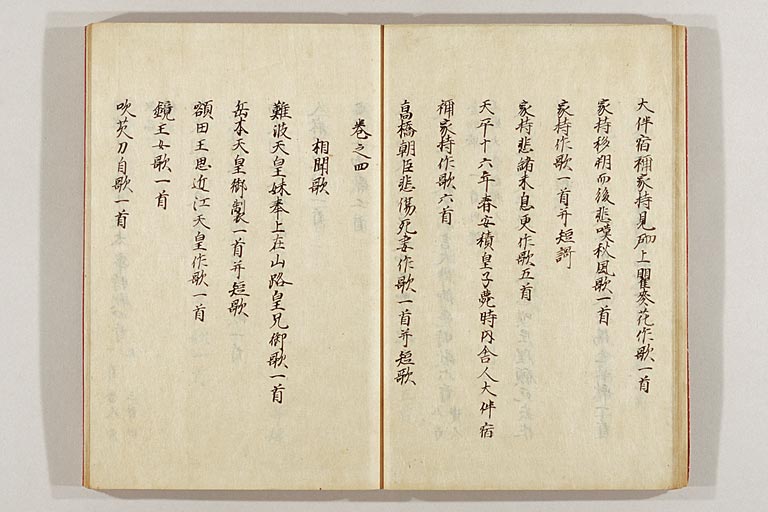 大伴宿祢家持見砌上瞿麥花作歌一首
家持移朔而後悲嘆秋風歌一首
家持作歌一首并短謌
家持悲諸未息更作歌五首
天平十六年春安積皇子薨時内舎人大伴宿
祢家持作歌六首
高橋朝臣悲傷死妻作歌一首并短歌
巻之四
相聞歌
難波天皇妹奉上在山路皇兄御歌一首
岳本天皇御製一首并短歌
額田王思近江天皇作歌一首
鏡王女歌一首
吹芡刀自歌一首